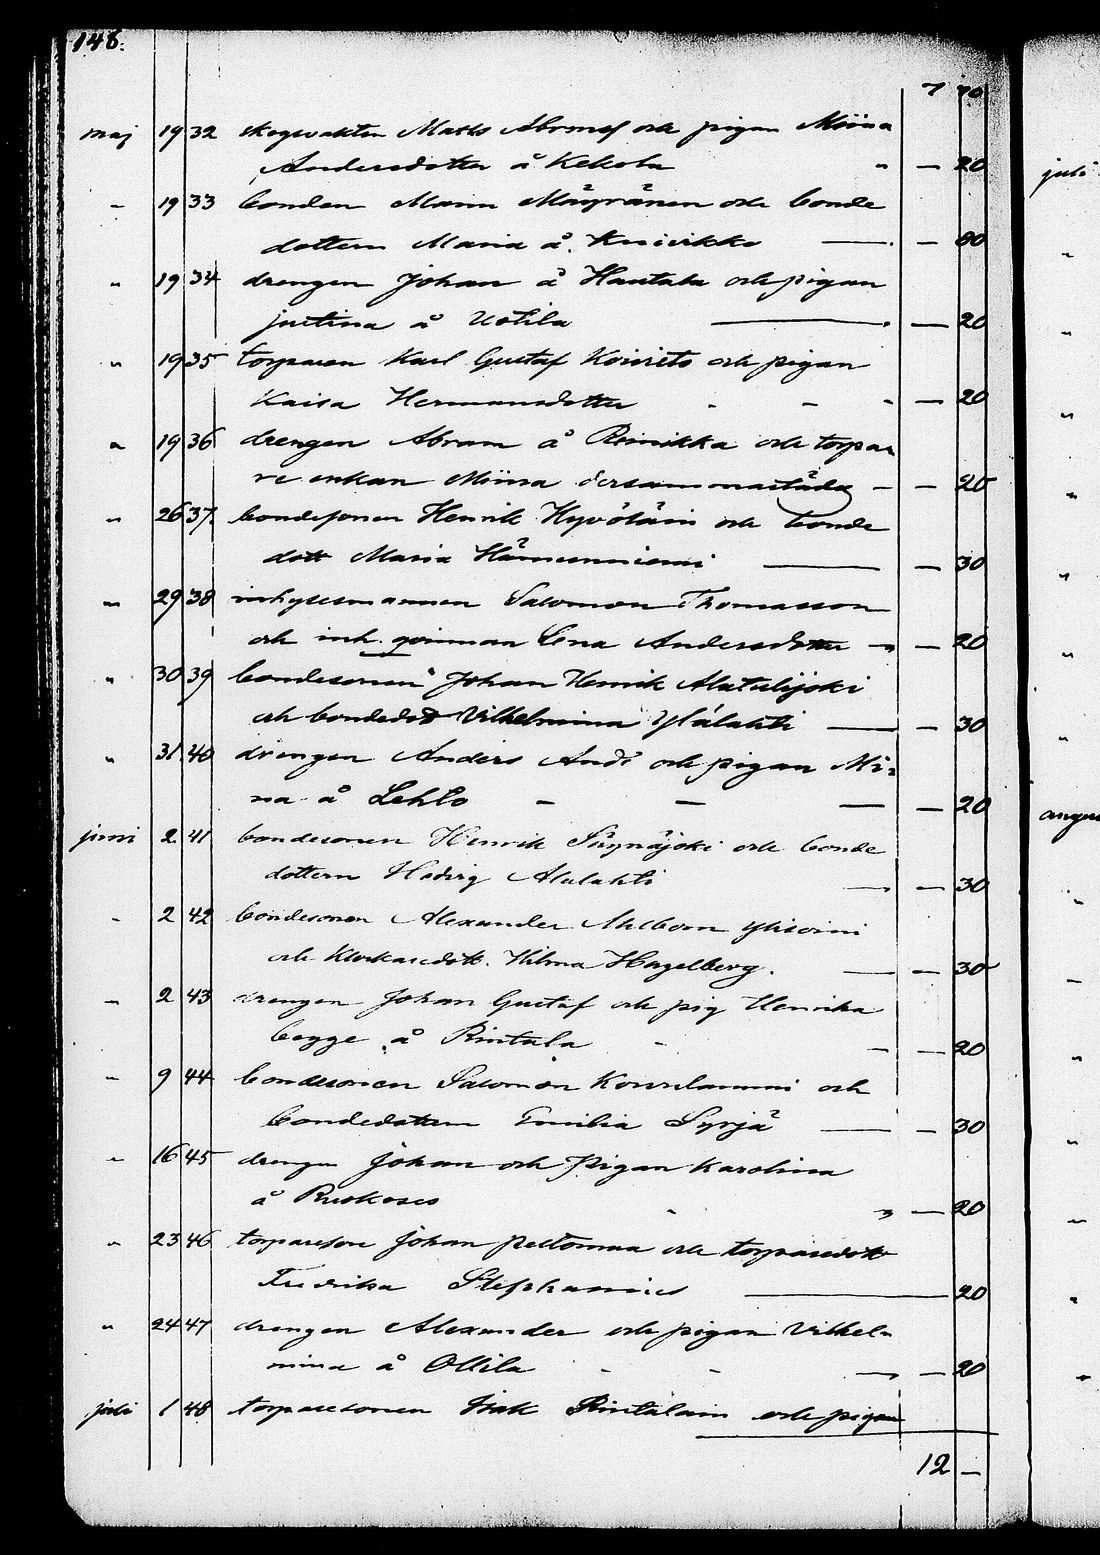 148.
7 70
maj 19 32 skogvakten Matts Abramsf och pigan Miina
Andersdotter å Kekola " — 20
" 19 33 bonden Manu Mäyränen och bonde
dottern Maria å — — 80
" 19 34 drengen Johan å Hautala och pigan
justina å Uotila — — 20
" 19 35 torparen Karl Gustaf Koivisto och pigan
Kaisa Hermansdotter - - - — 20
" 19 36 drengen Abram å Rinikka och torpa-
re enkan Miina dersammastädes — — 20
" 26 37. bondesonen Henrik Hyvöläin och bonde
dott Maria — — 30
" 29 38 inhysesmannen Salomon Thomasson
och inh. qvinnan Lena Andersdotter — — 20
" 30 39 bondesonen Johan Henrik Alatalijoki
och bondedot Vilhelmina Ylälahti — — 30
" 31. 40 drengen Anders And och pigan Mi-
na å Lehto — — — — 20
juni 2. 41 bondesonen Henrik och bonde
dottern Hedvig Alalahti — — 30
" 2 42 bondesonen Alexander Ahlbom
och Klockaredott. Hilma Hagelberg. — — 30
" 2 43 drengen Johan Gustaf och pig Henrika
begge å Rintala - — — 20
" 9 44 bondesonen Salomon och
bondedottern Emilia Syrjä — — 30
" 16 45 drengen Johan och Pigan Karolina
å - " — 20
" 23 46 torpareson Johan Peltomaa och torparedott
Fredrika — 20
" 24 47 drengen Alexander och pigan Vilhel-
mina å Ollila - - — — 20
juli 1 48 torparesonen Isak Rintalain och pigan
12 —
juli